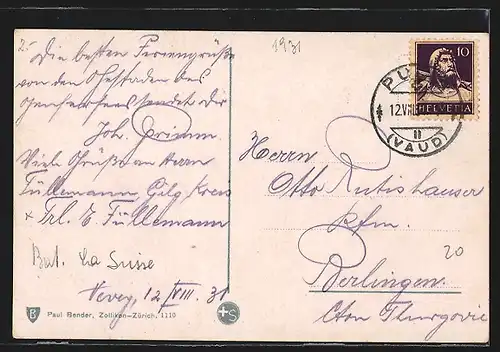 2.
Die besten Feriengrüße
von den Gestaden des
Genfersees sendet Dir
Joh. Grimm.
Viele Grüße an Herrn
Füllemann, Gilg Kreis
+ Frl. E. Füllemann
Bat. La Suisse
Vevey, 12 VIII. 31
Paul Bender, Zollikon-Zürich, 1110
+S
1931
10
HELVETIA
PU
12.VIII
(VAUD)
Herrn
Otto Rutishauser
Kfm.
20
Berlingen.
Cton Thurgovie